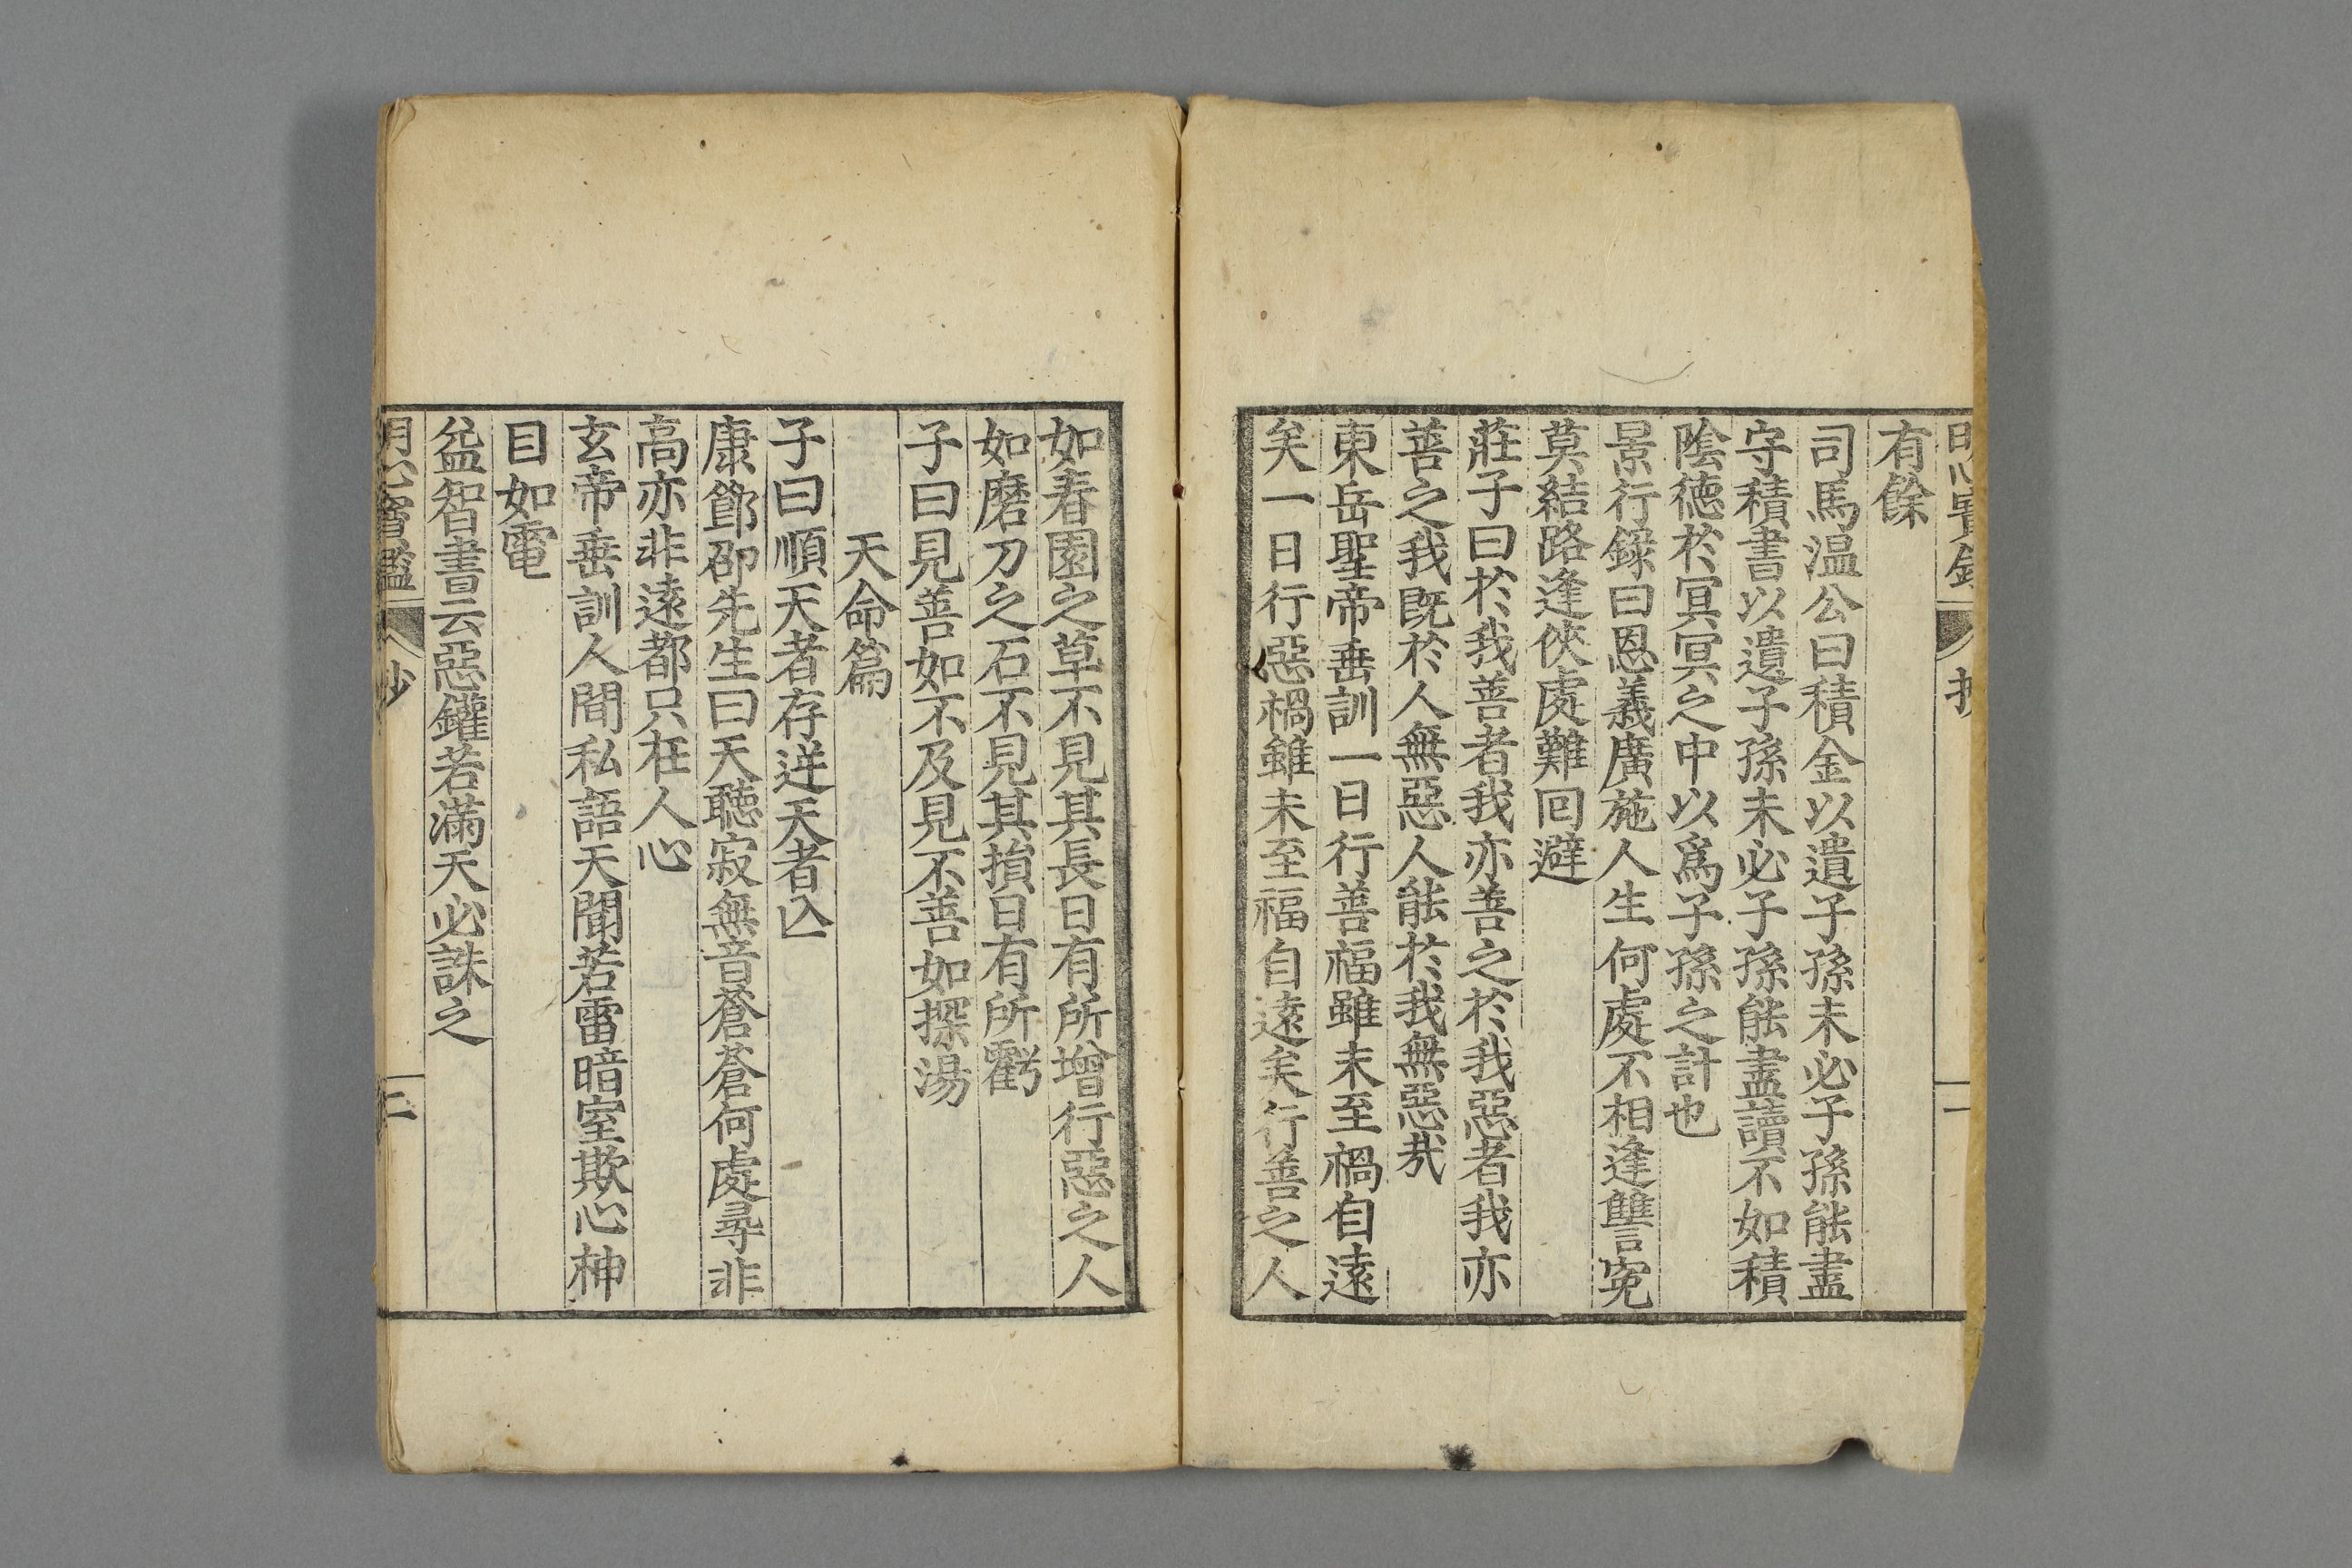 有餘
司馬温公曰積金以遺子孫未必子孫能盡
守積書以遺子孫未必子孫能盡讀不如積
陰德於冥冥之中以爲子孫之計也
景行録曰恩義廣施人生何處不相逢讐寃
莫結路逢俠處難回避
莊子曰於我善者我亦善之於我惡者我亦
善之我既於人無惡人能於我無惡哉
東岳聖帝垂訓一日行善福雖未至禍自遠
矣一日行惡禍雖未至福自遠矣行善之人
如春園之草不見其長日有所增行惡之人
如磨刀之石不見其損日有所虧
子曰見善如不及見不善如探湯
天命篇
子曰順天者存逆天者亾
康節邵先生曰天聽寂無音蒼蒼何處尋非
高亦非遠都只在人心
玄帝垂訓人間私語天聞若雷暗室欺心神
目如電
益智書云惡鑵若滿天必誅之
明心寶鑑 抄 二